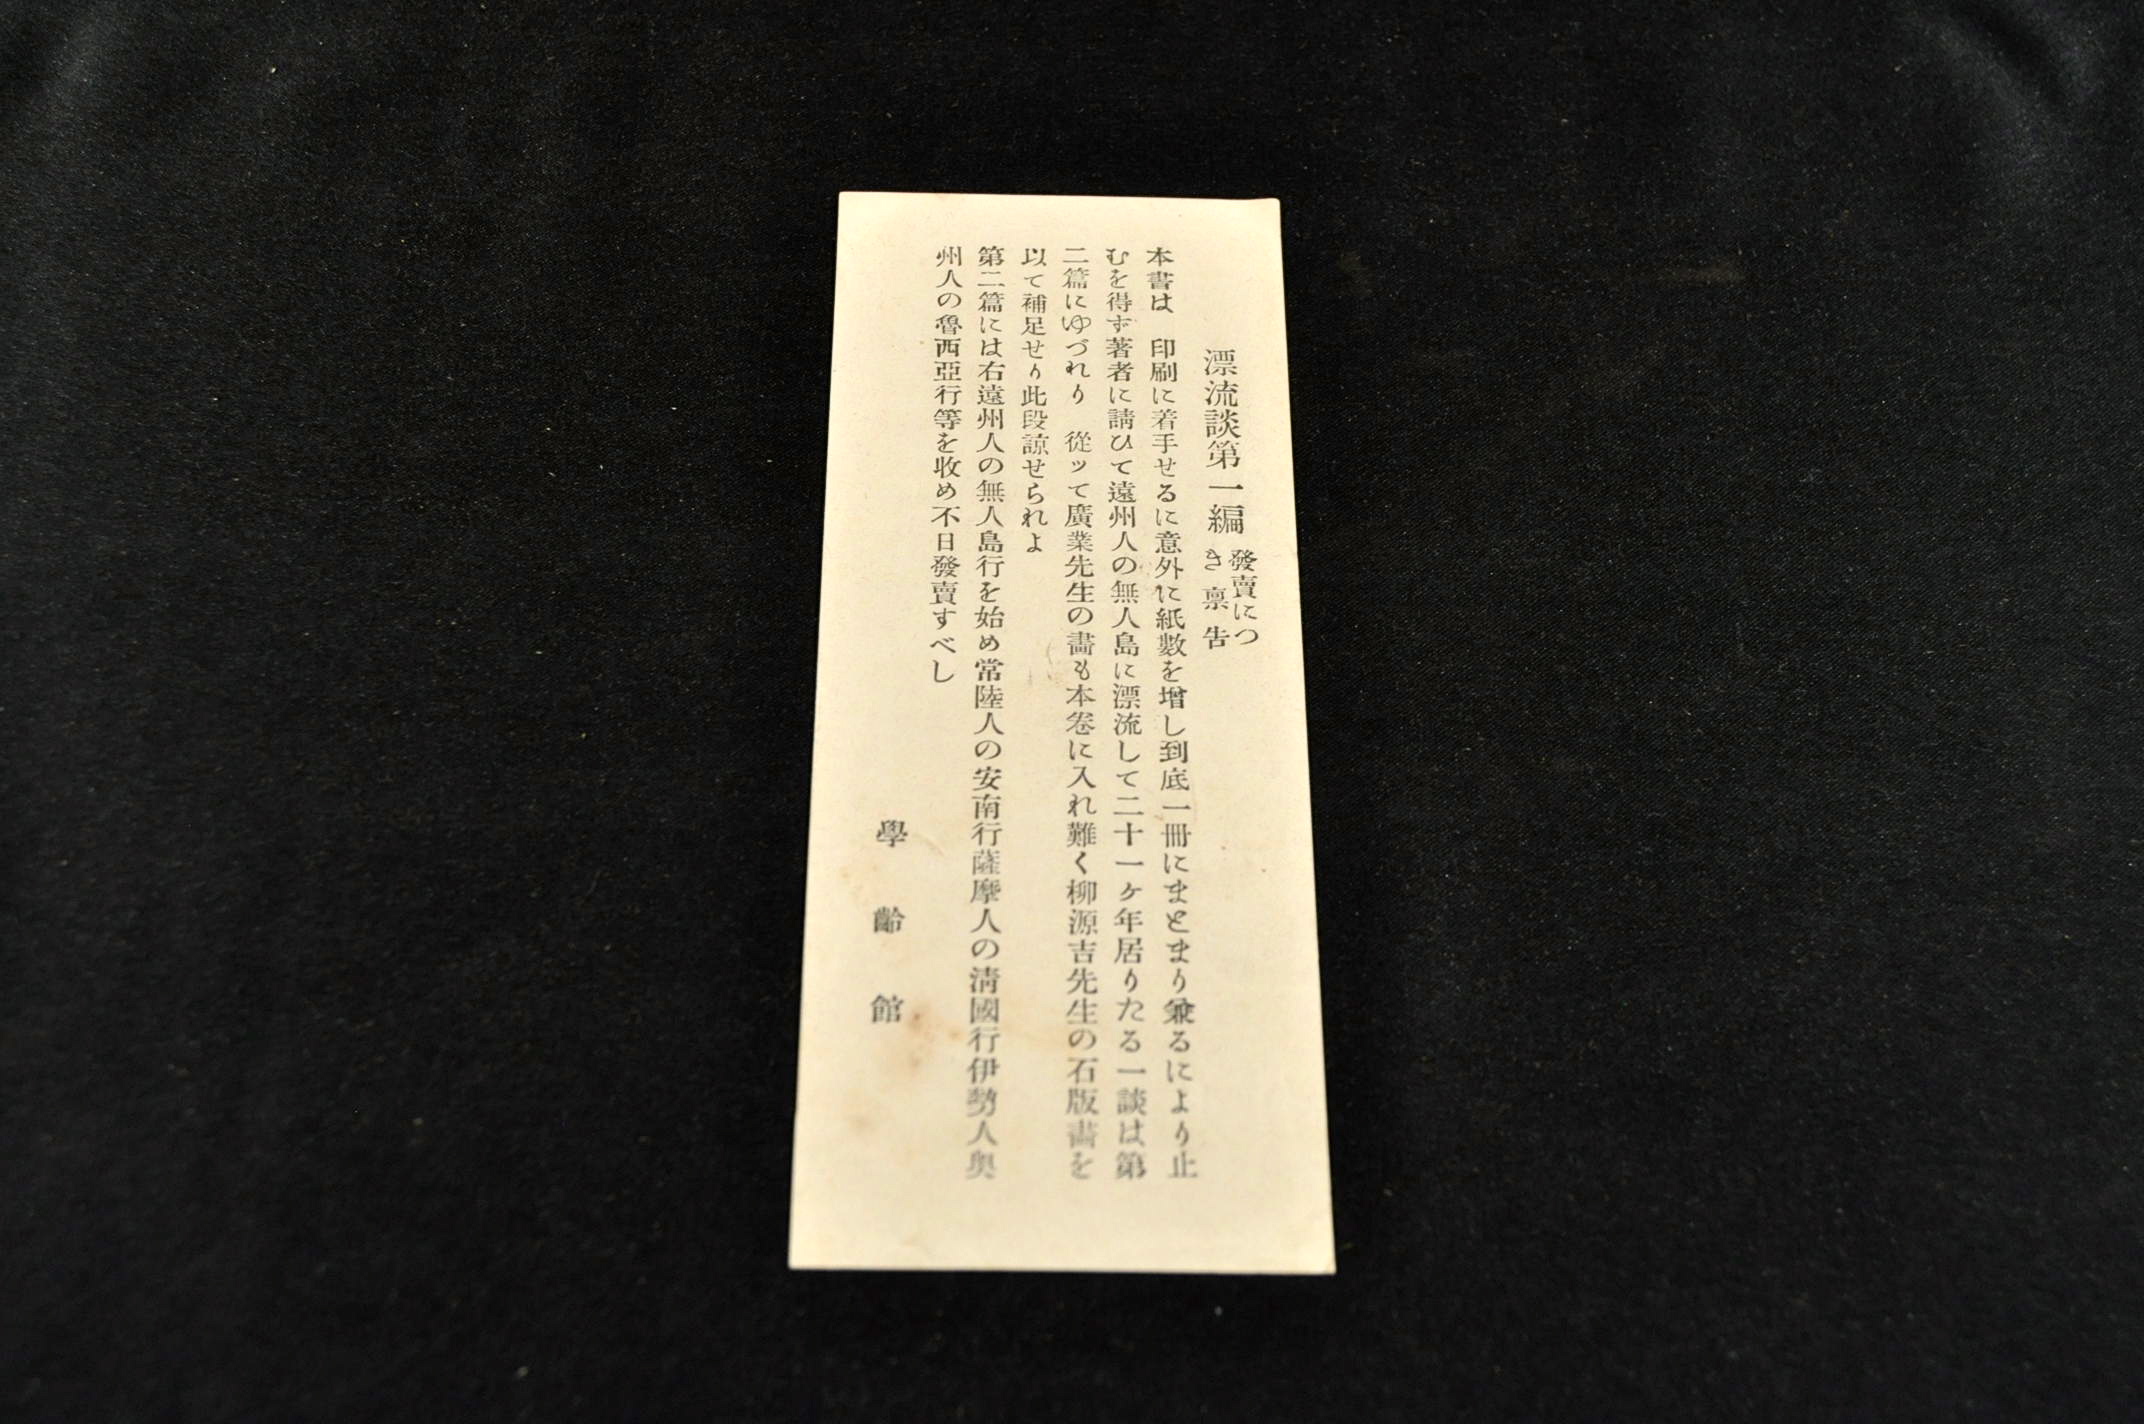 漂流談第一編 發賣につき禀告
本書は　印刷に着手せるに意外に紙數を増し到底一冊にまとまり兼るにより止
むを得ず著者に請ひて遠州人の無人島に漂流して二十一ヶ年居りたる一談は第
二篇にゆづれり　從ッて廣業先生の畵も本卷に入れ難く柳源吉先生の石版畵を
以て補足せり此段諒せられよ
第二篇には右遠州人の無人島行を始め常陸人の安南行薩摩人の清國行伊勢人奥
州人の魯西亞行等を收め不日發賣すべし
學齡館